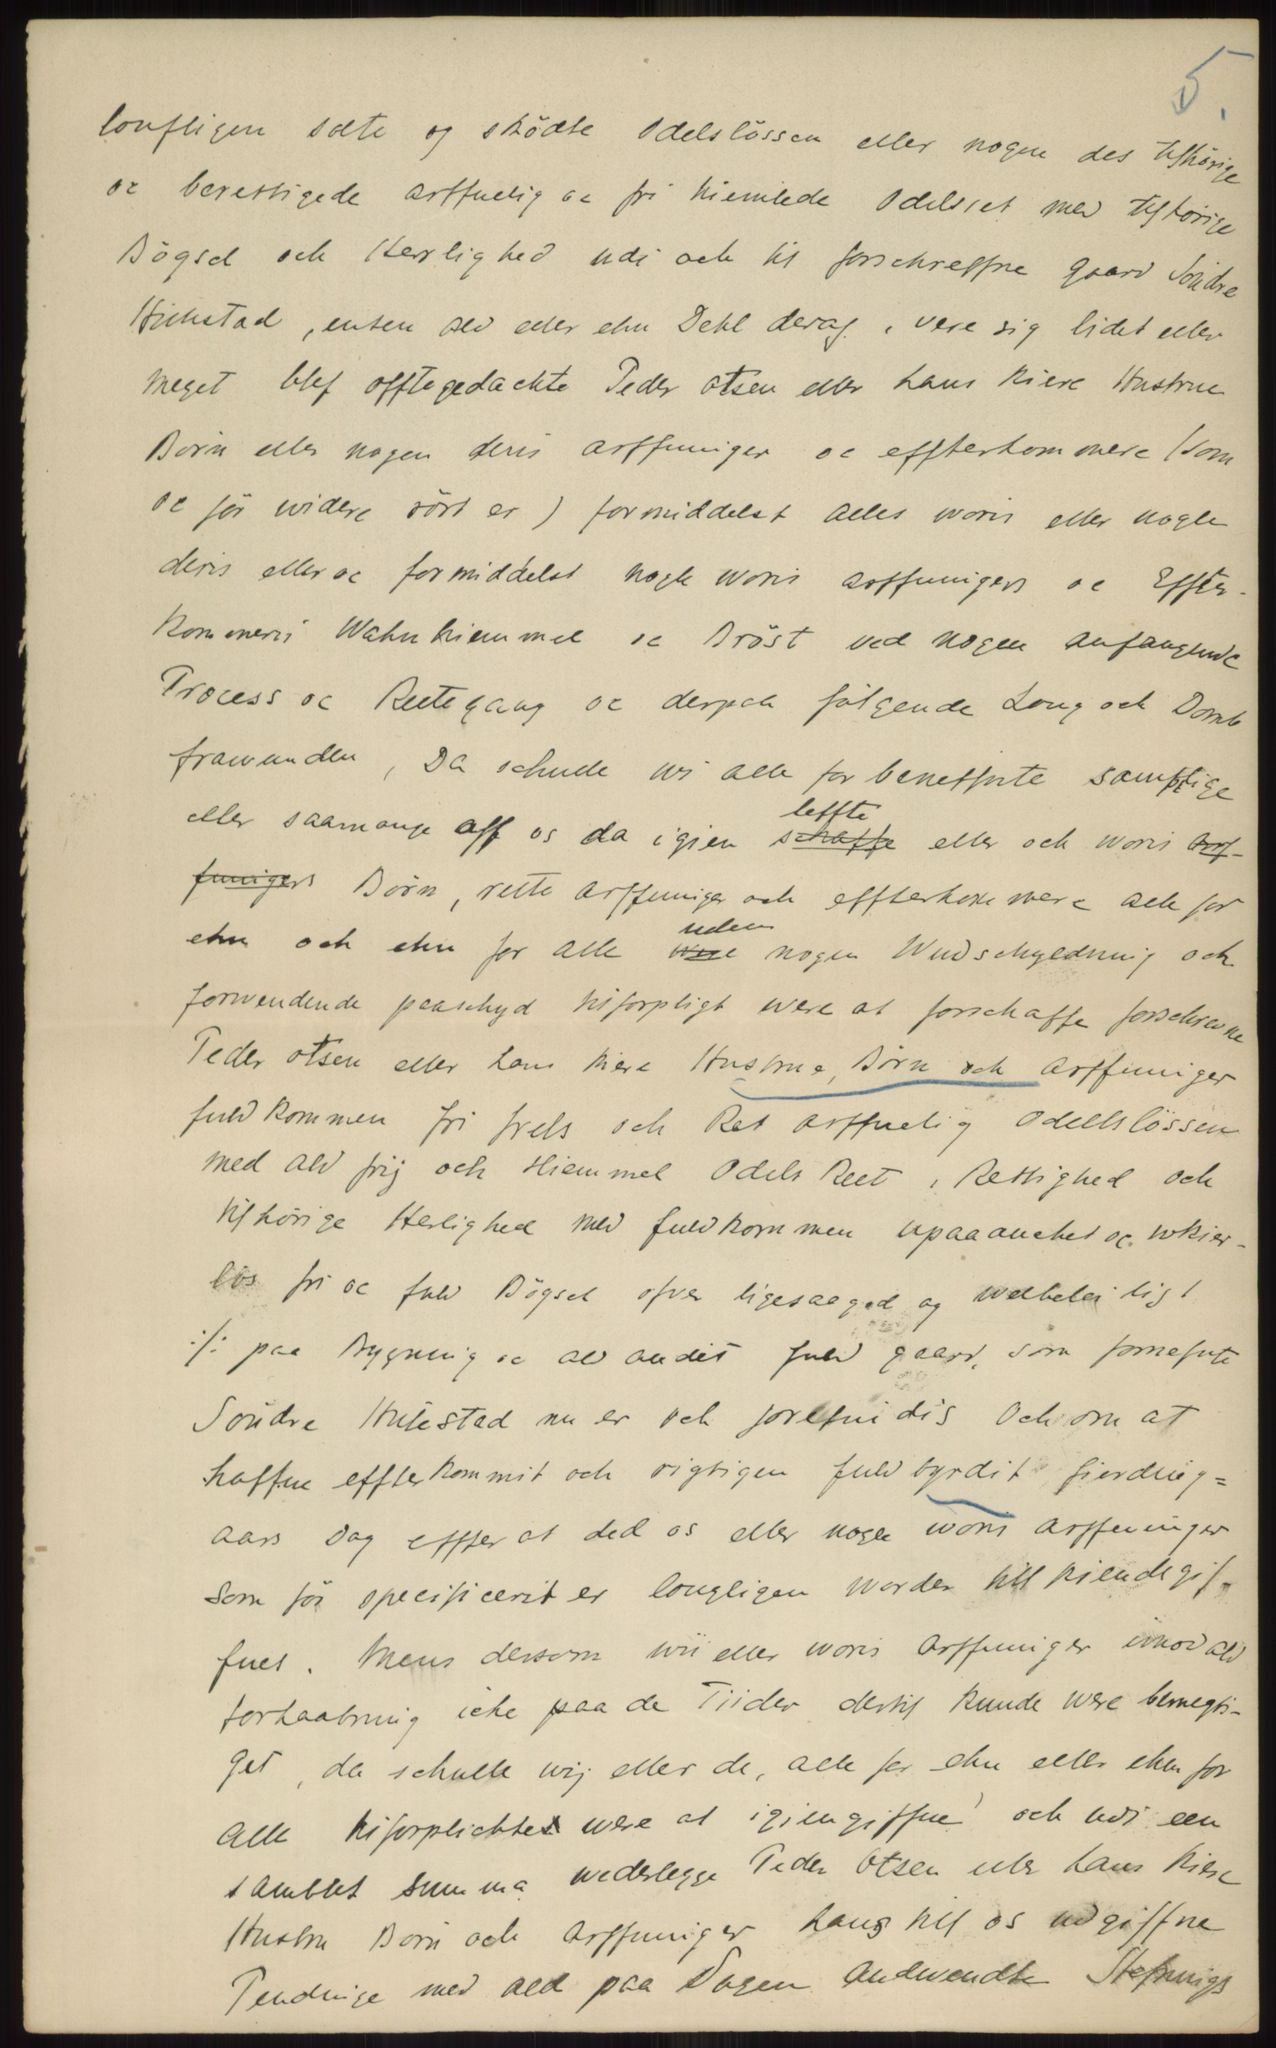 5.
loufligen solte og skødte Odelsløssen eller nogen des tilhørige
oc berettigede arffuelig oc fri hiemlede Odelsret med tilhørige
Bögsel och Herlighed udi och til forschreffne gaard Söndre
Hukestad, enten ald eller ehn Dehl deraf, vere sig lidet eller
meget blef offtegedachte Peder Otsen eller hans kiere Hustrue
Børn eller nogen deris arffuinger oc effterkommere (som
oc för widere rört er) formiddelst alles woris eller nogle
deris eller oc formiddelst nogle woris arffuingers oc Effter-
kommeris Wahnhiemmel oc Bröst ved nogen anfangende
Process oc Rettegang oc derpaa fölgende Loug och Domb
frawunden, Da schulle wi alle for benefhnte samptlige
eller saamange aff os da igien leffte eller och woris
Börn, rette arffuinger och effterkommere alle for
ehn och ehn for alle uden nogen Wndschyldning och
forwendende paaschud tilforpligt were at forschaffe forschreffne
Peder Otsen eller hans kiere Hustrue, Börn och arffuinger
fuldkommen fri frels och Ret arffuelig Odellslössen
med ald frij och Hiemmel Odels Reet, Rettighed och
tilhörige Herlighed med fuldkommen upaaanchet oc wkier-
lös fri oc fuld Bögsel ofver ligesaagod og welbeleiligt
·/· paa Bygning oc ald andet fuld gaard, som fornefnte
Söndre Hukestad nu er och forefindis och om at
haffue effterkommit och rigtigen fuldbyrdit fierding=
aars Dag effter at ded os eller nogle woris arffuinger
som för specificerit er lougligen worder till kiendegif-
fuet. Mens dersom wii eller woris arffuinger imod ald
forhaabning iche paa de Tiider dertil kunde were bemegti-
get, da schulle wij eller de, alle for ehn eller ehn for
alle tilforplichtet were at igiengiffue och udi een
samblet summa wederlegge Peder Otsen eller hans kiere
Hustru Börn och arffuinger hans till os udgiffne
Pendinge med ald paa Sagen andwendte Stefnings